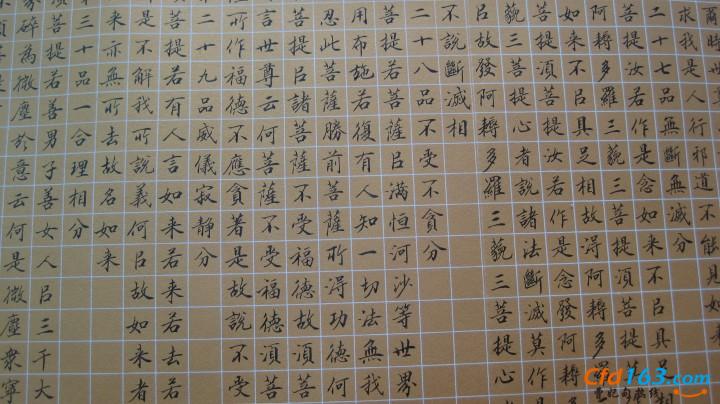 爾時世
求我是人行邪道不能見
二十七品無斷無滅分
菩提汝若作是念如來不㠯具
阿耨多羅三藐三菩提須菩提
如來不㠯具足相故淂阿耨多羅
菩提須菩提汝若作是念發阿耨
藐三菩提心者說諸法斷滅莫作
㠯故發阿耨多羅三藐三菩提心
不說斷滅相
二十八品不受不貪分
菩提若菩薩㠯滿恒河沙等世界
用布施若復有人知一切法無我
忍此菩薩勝前菩薩所淂功德何
菩提㠯諸菩薩不受福德故須菩
言世尊云何菩薩不受福德須菩
所作福德不應貪著是故說不受
二十九品威儀寂靜分
菩提若有人言如來若來若去若
是不解我所說義何㠯故如來者
來亦無所去故名如
三十品一合理相分
菩提若善男子善女人㠯三千大
碎為微塵於意云何是微塵眾寧
Cfd163.com